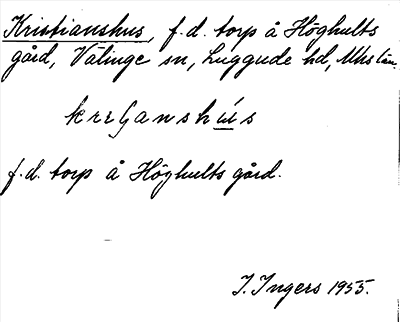 Kristianshus, f.d. torp å Höghults
gård, Välinge sn, Luggude hd, Mhs län.
f.d. torp å Höghults gård.
I. Ingers 1955.